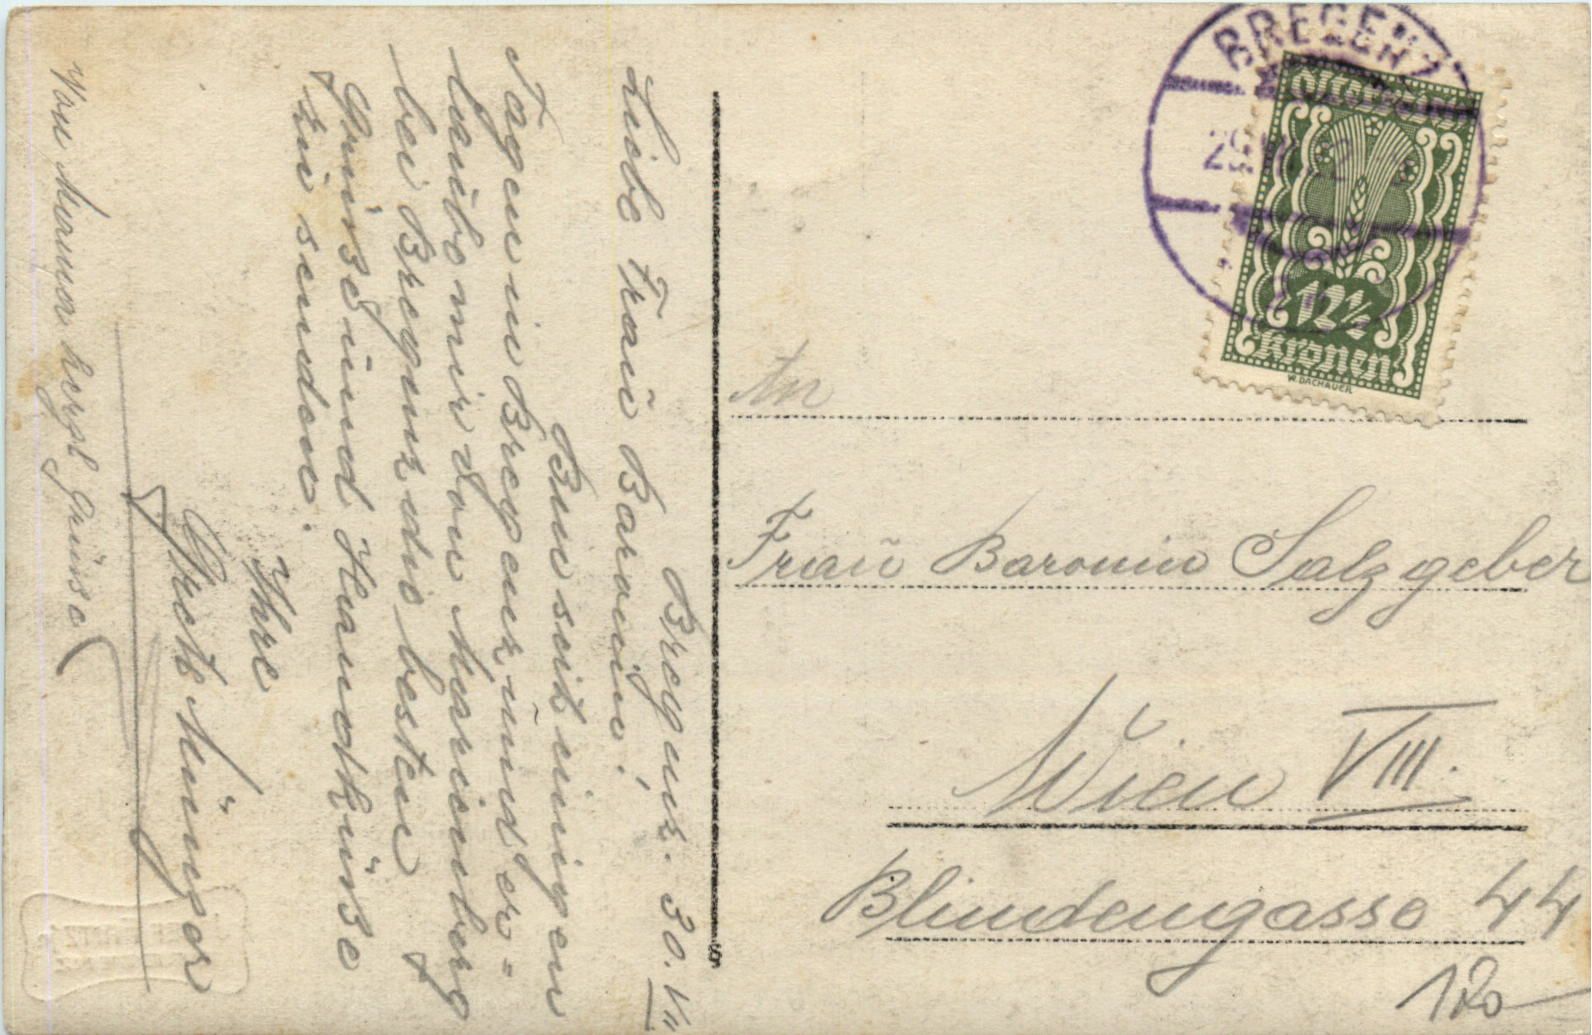 Bregenz. 30. VII
Liebe Frau Baronin!
Bin seit einigen
Tagen in Bregenz und er-
laube mir von Marienberg
bei Bregenz die besten
Grüsse und Handküsse
zu senden.
Ihre
Grete Münger
Von Mama herzl. Grüsse
BREGENZ
29.
Österreich
12½
Kronen
W. DACHAUER
An
Frau Baronin Salzgeber
Wien VIII.
Blindengasse 44
120